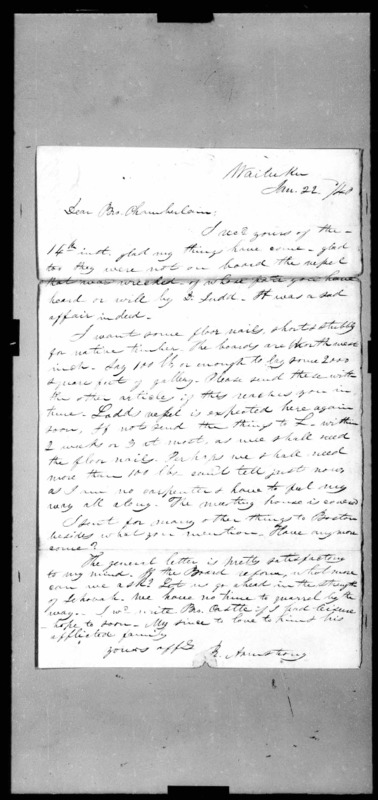 Wailuku
Jan. 22 /40
Dear Bro. Chamberlain;
I recd yours of the
14th inst, glad my things have come - glad
too they were not on board the vessel
that was wrecked, of whose fate you have
heard or will by D. Ladd. It was a sad
affair indeed.
I want some floor nails, short & stubby
for native timber. The boards are
inch. Say 100 lb or enough to lay some 2000
square feet of gallery. Please send these with
the other articles if this reaches you in
time. Ladds vessel is expected here again
soon. If not send the things to L. within
2 weeks or 3 at most, as we shall need
the floor nails. Perhaps we shall need
more than 100 lbs can't tell just now
as I am no carpenter & have to feel my
way all along. The meeting house is covered
I sent for many other things to Boston
besides what you mention. Have any more
come?
The general letter is pretty satisfactory
to my mind. If the Board reform, what more
can we ask? Let us go ahead in the strength
of Jehovah. We have no time to quarrel by the
way. I will write Bro. Castle if I find leisure
hope to soon. My sincere love to him & his
afflicted family
yours affly
R. Armstrong